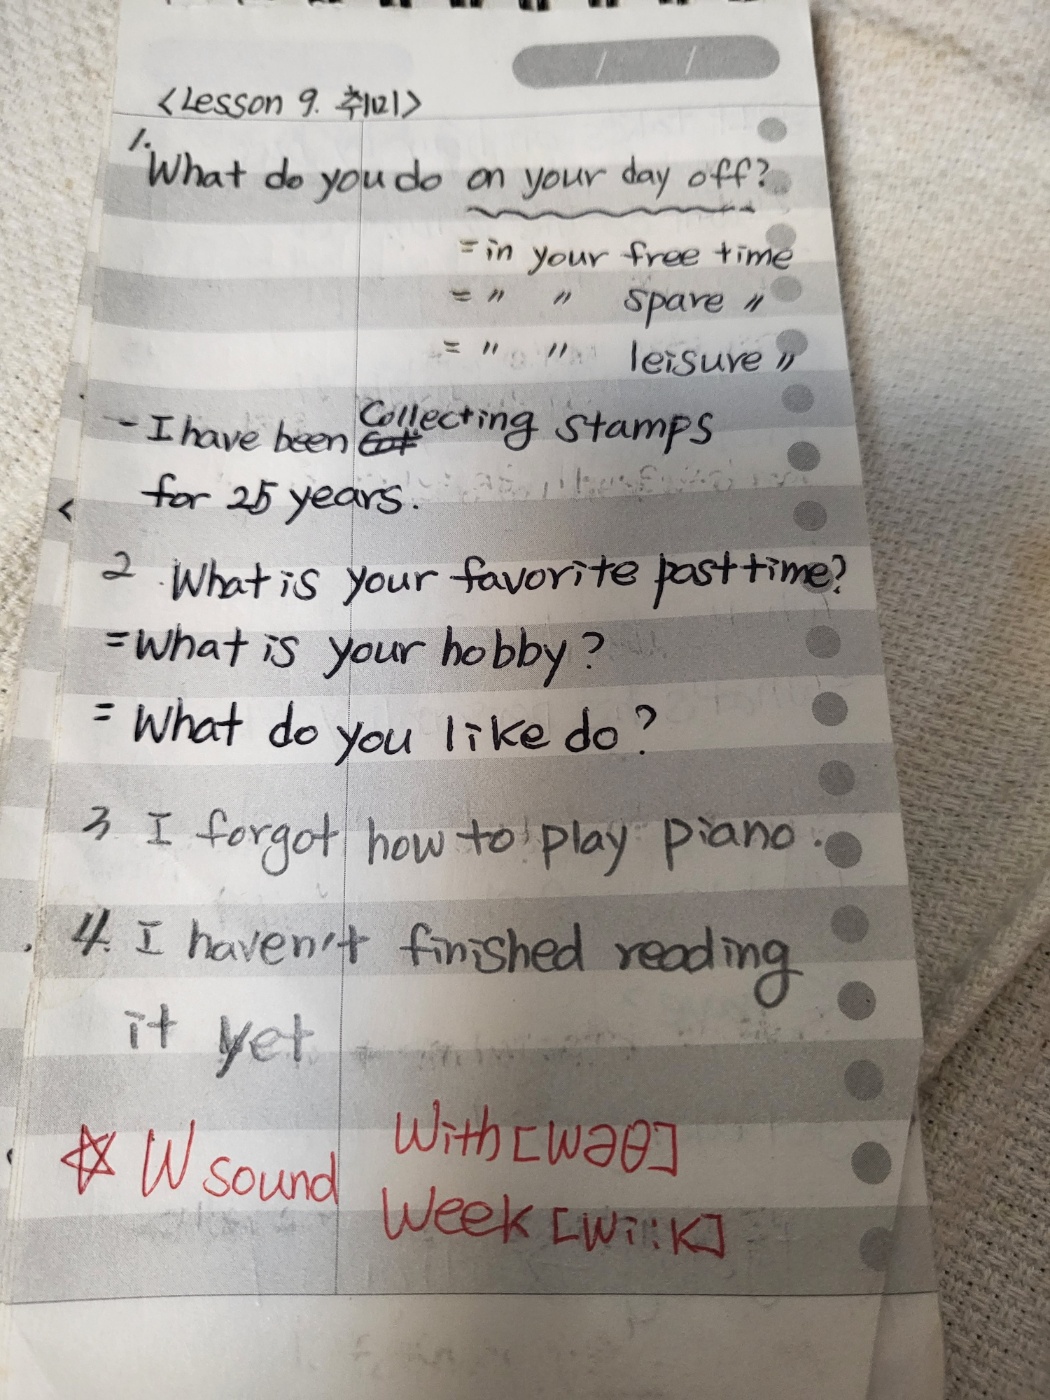 <Lesson 9. 취미>
1. What do you do on your day off?
= in your free time
= " " spare "
= " " leisure "
- I have been Collecting stamps
for 25 years.
2. What is your favorite pasttime?
= What is your hobby?
= What do you like do?
3 I forgot how to play piano.
4. I haven't finished reading
it yet
☆ W sound With [wəθ]
Week [wi:k]